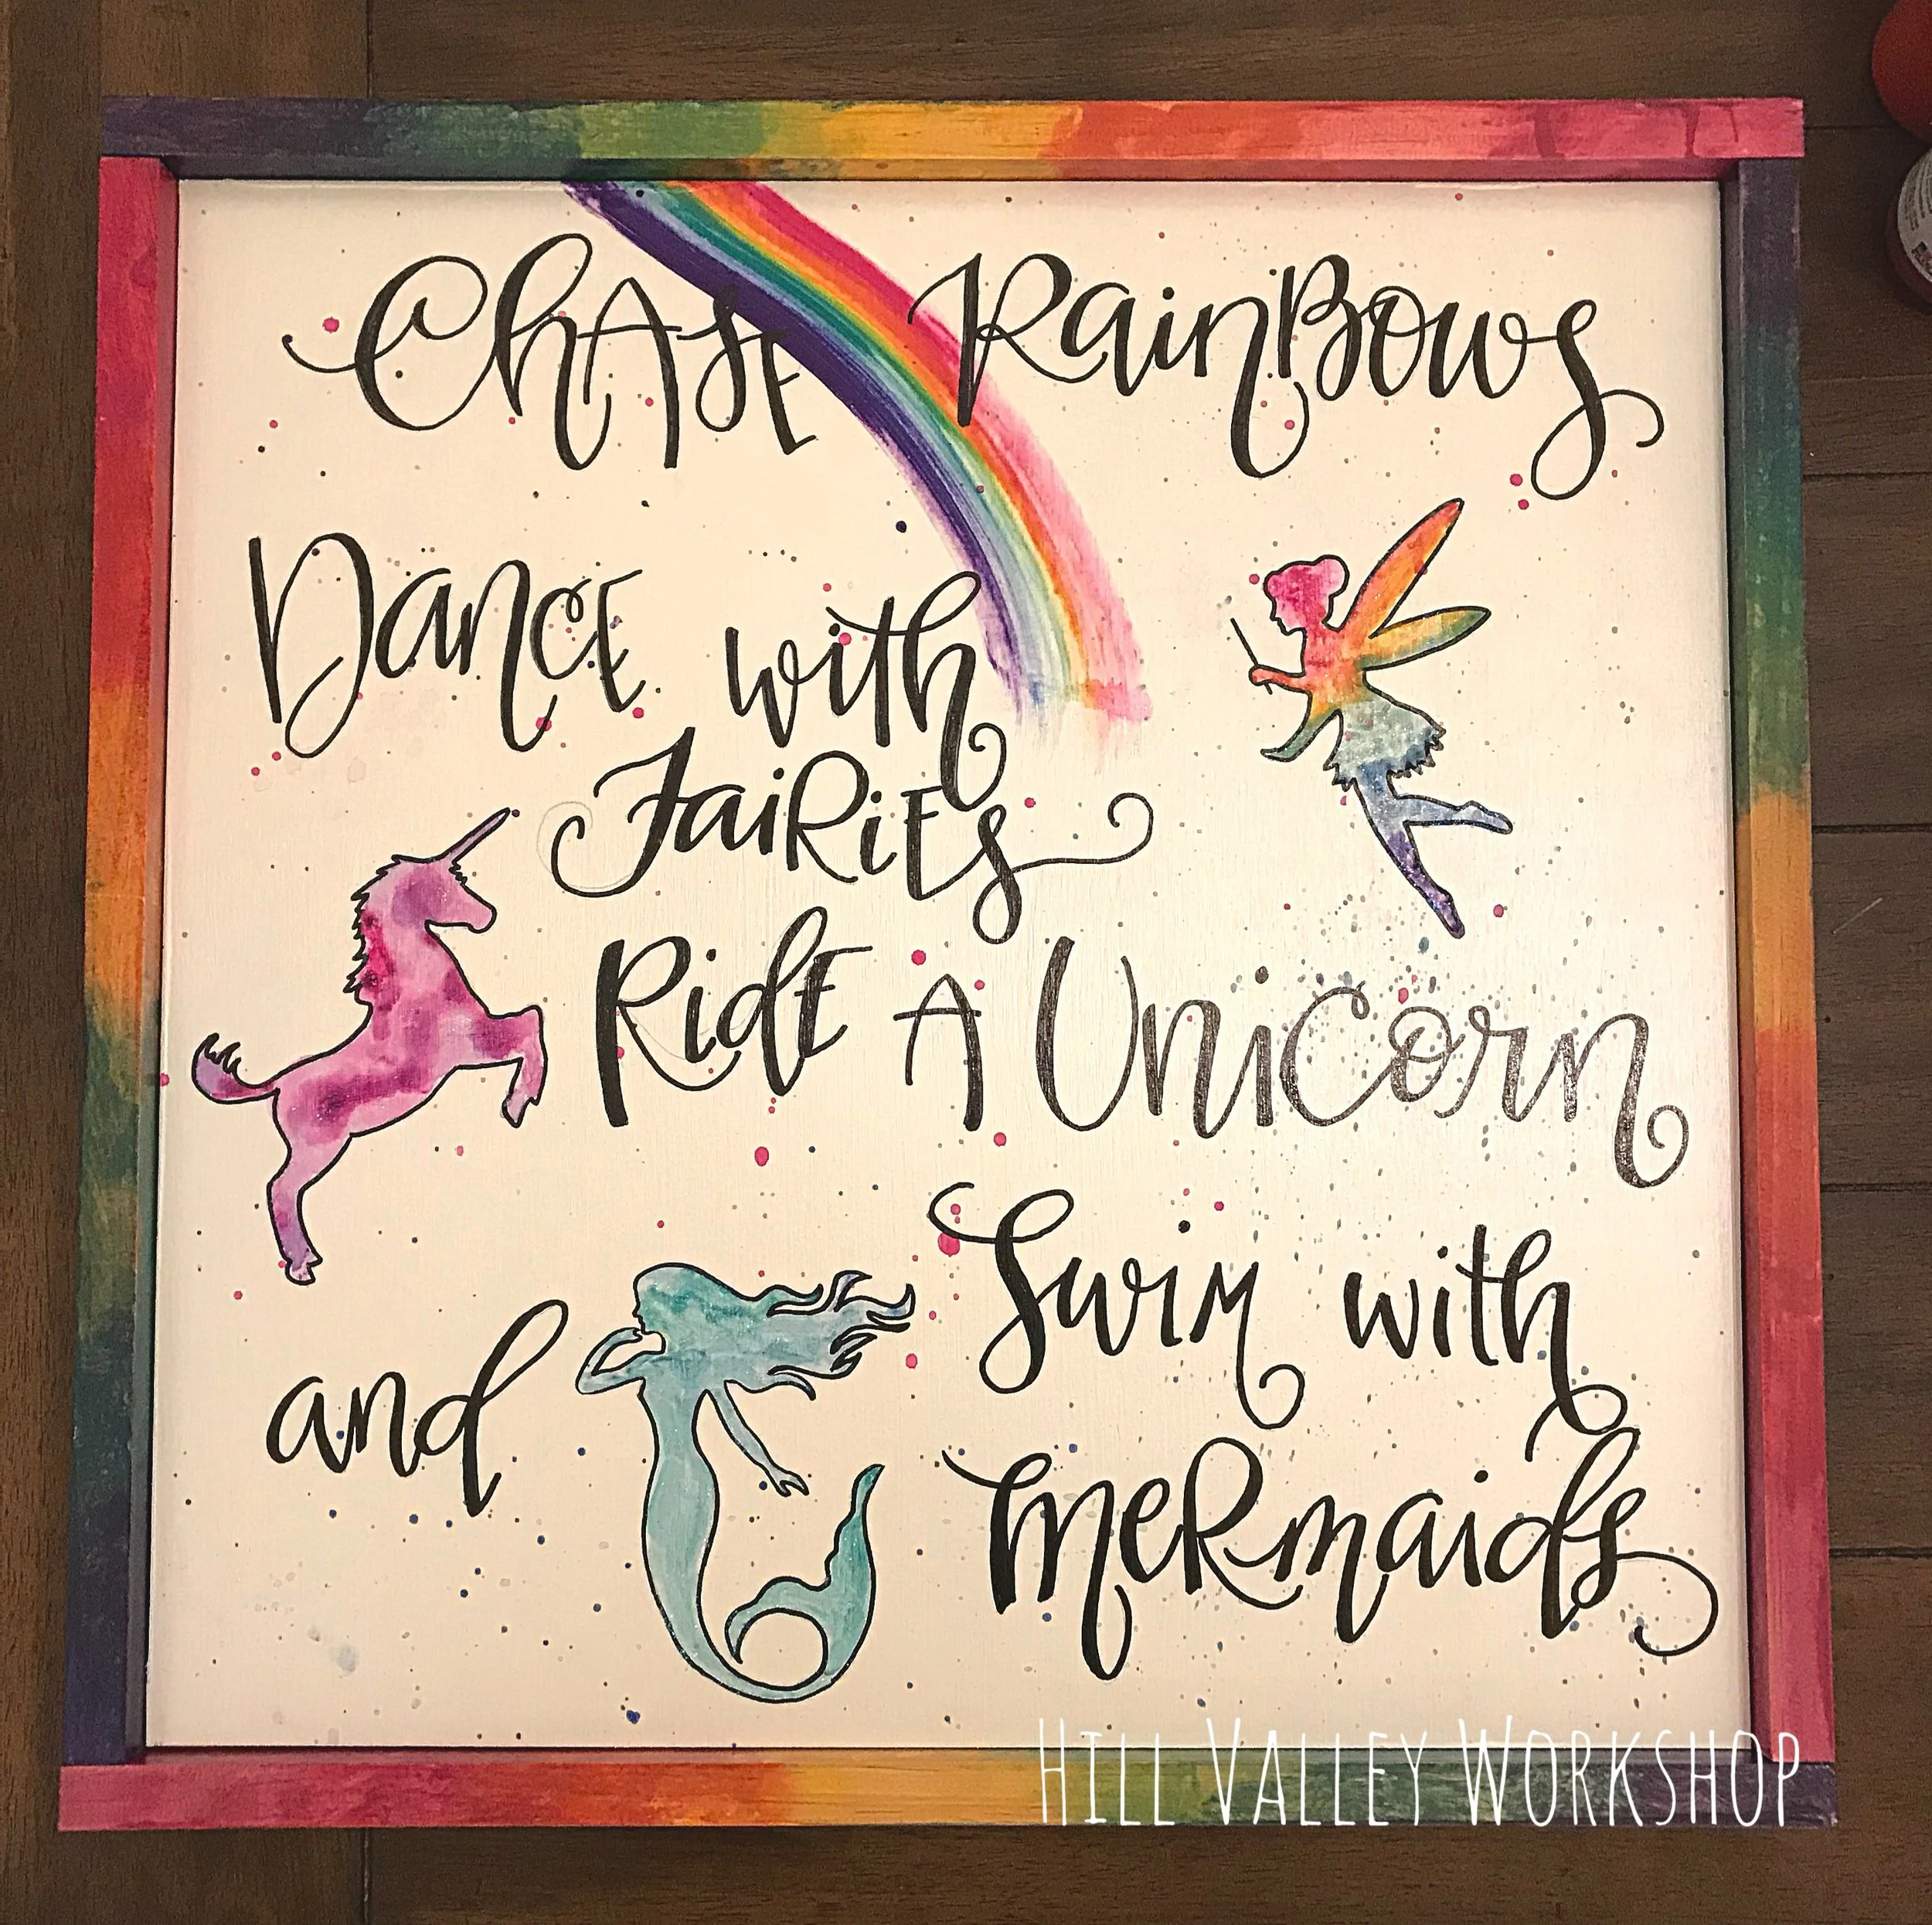 ChASE RainBows
DancE with
FaiRiEs
RidE A Unicorn
and Swim with
meRmaids
HILL VALLEY WORKSHOP